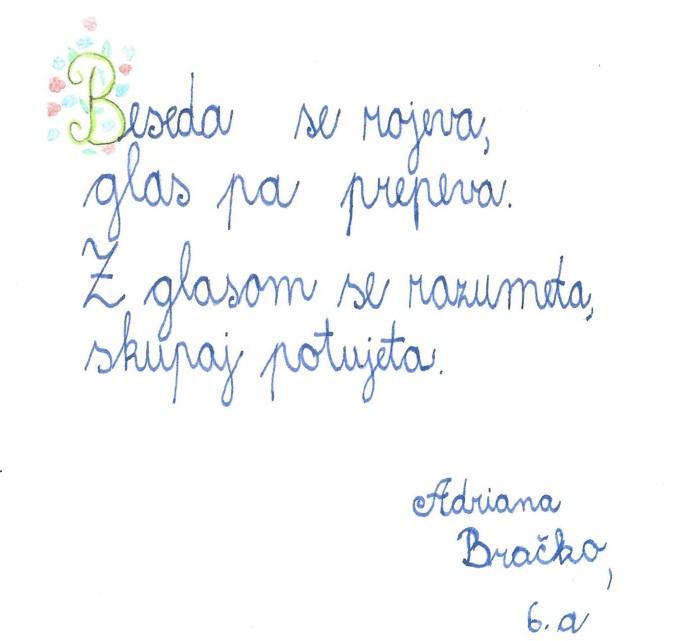 Beseda se rojeva,
glas pa prepeva.
Z glasom se razumeta,
skupaj potujeta.
Adriana
Bračko,
6. a